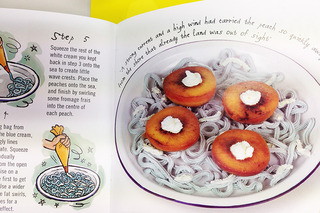 Step 5
Squeeze the rest of the
white cream you kept
back in step 3 onto the
sea to create little
wave crests. Place the
peaches onto the sea,
and finish by swirling
some fromage frais
into the centre of
each peach.
bag from
e blue cream,
gly lines
ats. Squeeze
adually
on the open
ise on a
e first to get
se a wider
e fat swirls,
es for a
effect.
"A strong current and a high wind had carried the peach so quickly away
from the shore that already the land was out of sight"